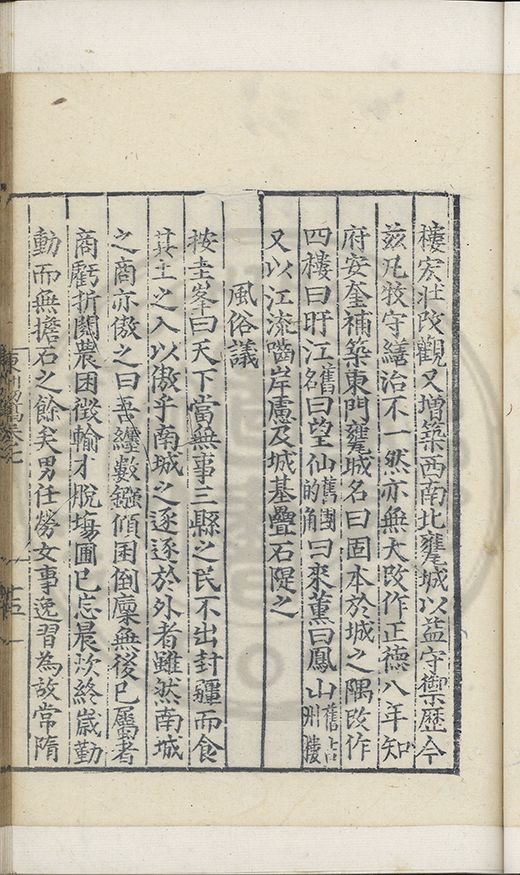 樓宏壯改觀又增築西南北甕城以益守禦歷今
茲凡牧守繕治不一然亦無大改作正德八年知
府安奎補築東門甕城名曰固本於城之隅改作
四樓曰盱江舊名曰望仙舊團的角曰來薰曰鳳山舊占州樓
又以江流嚙岸慮及城基疊石隄之
風俗議
按圭峯曰天下當無事三縣之民不出封疆而食
其土之入以傲乎南城之逐逐於外者雖然南城
之商亦傲之曰吾纏數鏹傾囷倒廩無後已屬者
商虧折閱農困徵輸才脫場圃已忘晨炊終歲勤
動而無擔石之餘矣男任勞女事逸習為故常隋